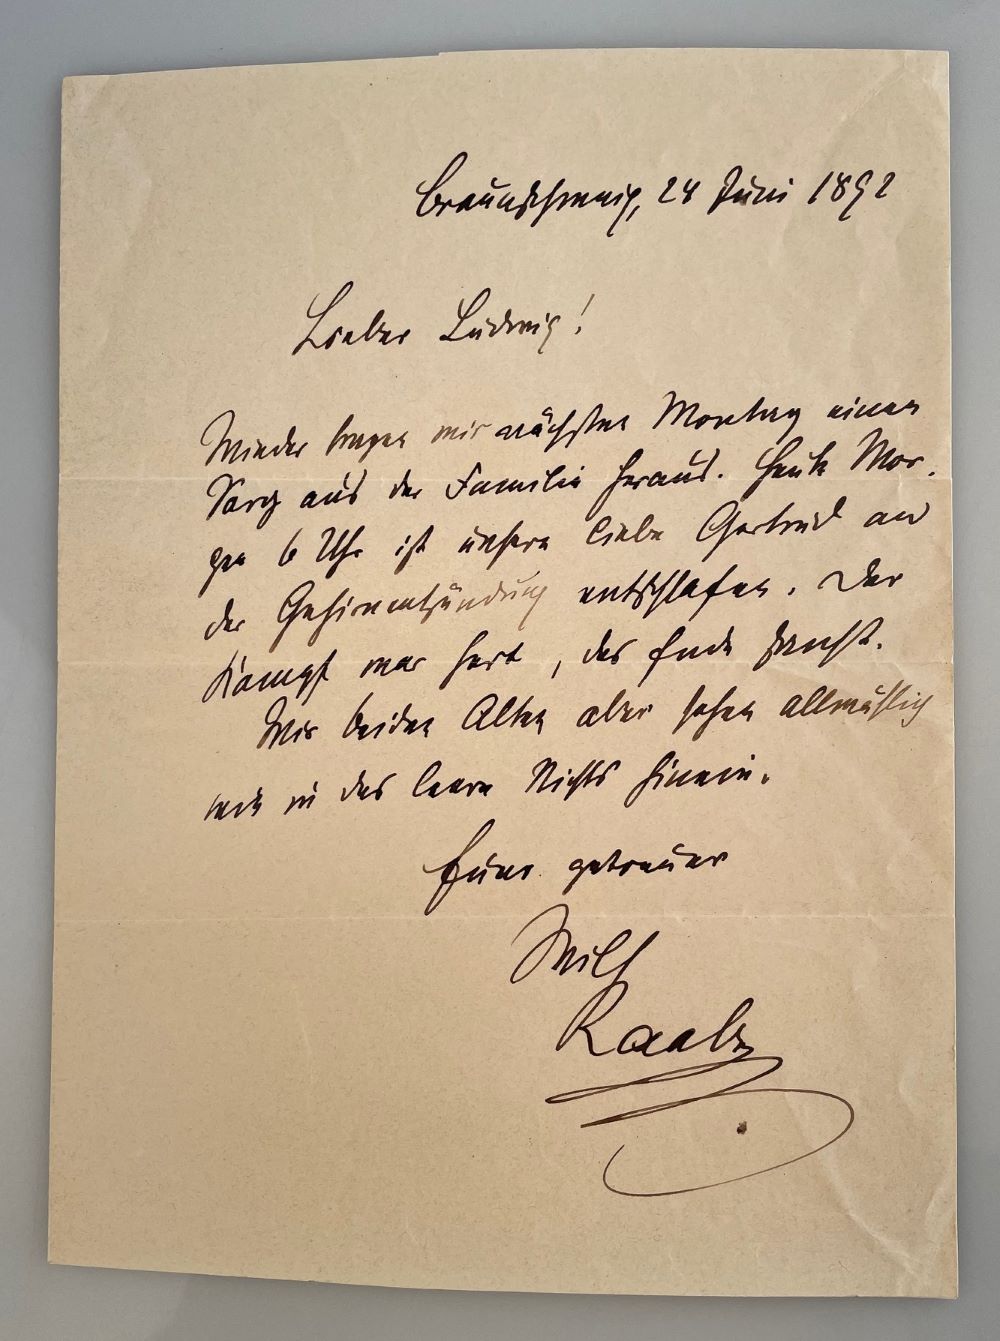 Braunschweig, 24 Juni 1892
Lieber Ludwig!
Wieder tragen wir nächsten Montag einen
Sarg aus der Familie heraus. Heute Mor-
gen 6 Uhr ist unsere liebe Gertrud an
der Gehirnentzündung entschlafen. Der
Kampf war hart, das Ende sanft.
Wir beiden Alten aber sehen allmählich
weit in das leere Nichts hinein.
Euer getreuer
Wilh
Raabe